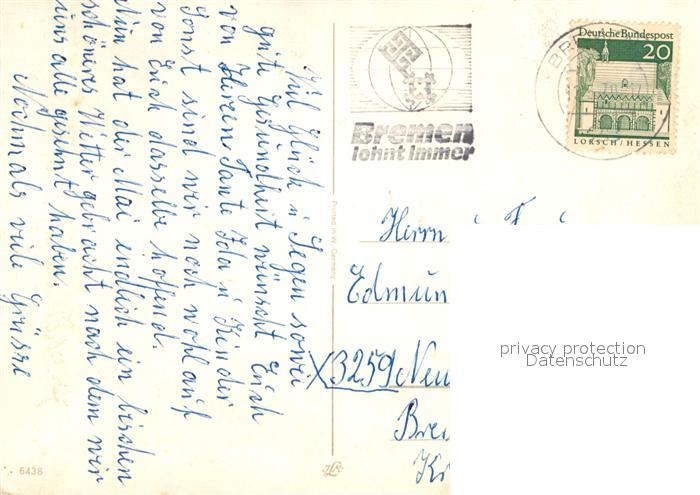 Viel Glück u Segen sowie
gute Gesundheit wünscht Euch
von Herzen Tante Ida u Kinder
Sonst sind wir noch wohlauf
von Euch dasselbe hoffend.
Nun hat der Mai endlich ein bischen
schöneres Wetter gebracht nach dem wir
uns alle gesehnt haben.
Nochmals viele Grüsse
Bremen
lohnt immer
Deutsche Bundespost
20
LORSCH/HESSEN
Printed in W. Germany
Herrn u
Edmun
X3259 Neu
Bre
6438
privacy protection
Datenschutz